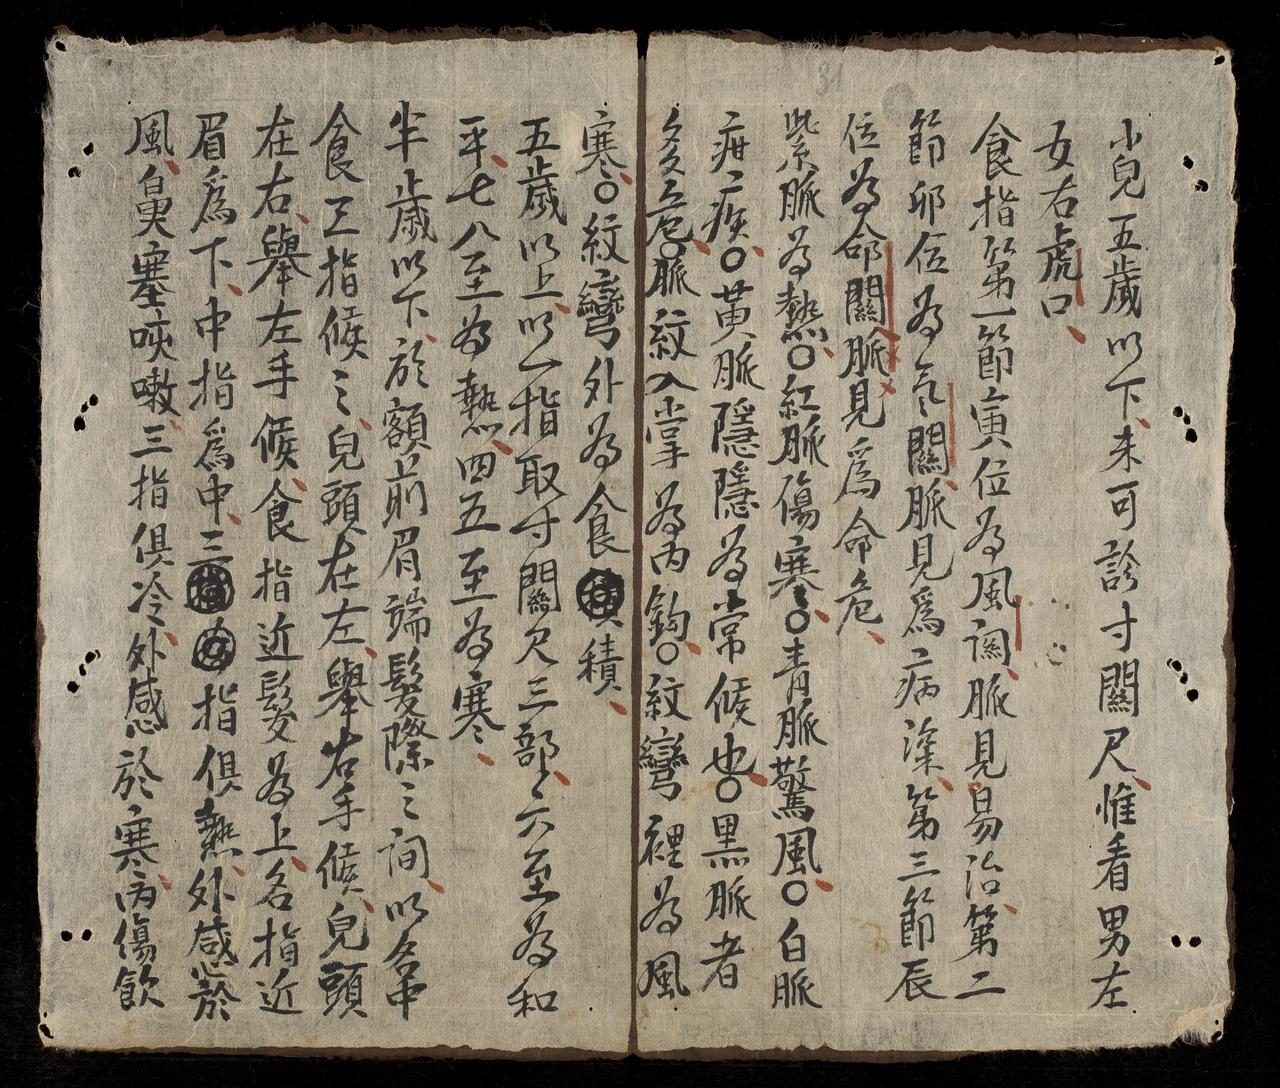 小兒五歲以下、未可診寸關尺、惟看男左
女右虎口、
食指第一節寅位為風関、脈見易治、第二
節卯位為氣關、脈見爲病深、第三節辰
位為命關、脈見爲命危、
紫脈為熱、○紅脈傷寒、○青脈驚風、○白脈
疳疾、○黃脈隱隱為常候也、○黑脈者
多危、○脈紋入掌為内鈎、○紋彎裡為風
寒、○紋彎外為食積、
五歲以上、以一指取寸關尺三部、六至為和
平、七八至為熱、四五至為寒、
半歲以下、於額前眉端髮際之間、以名中
食三指候之、兒頭在左、舉右手候、兒頭
在右、舉左手候、食指近髮為上、名指近
眉爲下、中指爲中、三指俱熱、外感於
風、鼻塞咳嗽、三指俱冷、外感於寒、内傷飲
31